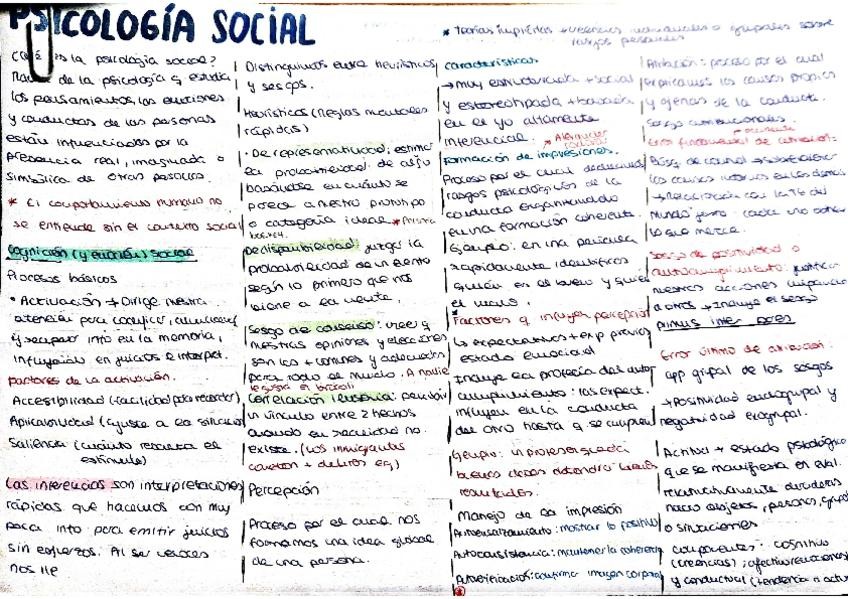 PSICOLOGÍA SOCIAL
* Teorías implícitas → creencias individuales o grupales sobre
rasgos personales
¿Qué es la psicología social?
de la psicología q estudia
los pensamientos, las emociones
y conductas de las personas
están influenciados por la
presencia real, imaginada o
simbólica de otras personas.
* El comportamiento humano no
se entiende sin el contexto social
Cognición (y emoción) social
Procesos básicos
• Activación → Dirige nuestra
atención para codificar, almacenar
y recuperar info en la memoria,
influyendo en juicios e interpret.
Factores de la activación.
Accesibilidad (facilidad para recordar)
Aplicabilidad (ajuste a la situación
Saliencia (cuánto resalta el
estímulo)
Las inferencias son interpretaciones
rápidas que hacemos con muy
poca info para emitir juicios
sin esfuerzos. Al ser veloces
nos
Distinguimos entre heurísticos
y sesgos.
Heurísticos (Reglas mentales
rápidas)
• De representatividad: estimar
la probabilidad de algo
basándose en cuánto se
parece a nuestro prototipo
o categoría ideal.
De disponibilidad: juzgar la
probabilidad de un evento
según lo primero que nos
viene a la mente.
Sesgo de consenso: creer q
nuestras opiniones y elecciones
son las + comunes y adecuadas
para todo el mundo. A nadie
le gusta el brócoli
Correlación ilusoria: percibir
un vínculo entre 2 hechos
cuando en realidad no
existe. (Los inmigrantes
cometen + delitos ej)
Percepción
Proceso por el cual nos
formamos una idea global
de una persona.
Características
→ muy estructurada + social
y estereotipada + basada
en el yo altamente
inferencial.
Formación de impresiones.
Proceso por el cual deducimos
rasgos psicológicos de la
conducta organizándolo
en una formación coherente.
Ejemplo: en una película
rápidamente identificas
quién es el bueno y quién
el malo.
* Factores q influyen percepción
↳ expectativas + exp previas
estado emocional
Incluye la profecía del auto
cumplimiento: las expect.
influyen en la conducta
del otro hasta q se cumplen
Ejemplo: un profesor q
buenas clases obtendrá buenos
resultados.
Manejo de la impresión
mostrar lo positivo
Autoconsistencia: mantener la coherencia
Autoverificación: confirma imagen
Atribución: proceso por el cual
explicamos las causas propias
y ajenas de la conducta.
Sesgos
Error fundamental de atribución:
los causas internas en los demás
→ Relacionado con la Tª del
mundo justo: cada uno obtiene
lo que merece.
Sesgo de positividad o
nuestras acciones
a otros → Incluye el sesgo
primus inter pares
Error último de atribución:
app grupal de los sesgos
→ Positividad endogrupal y
negatividad exogrupal.
Actitud → estado psicológico
que se manifiesta en eval.
relativamente duraderas
hacia objetos, personas, grupos
o situaciones
componentes: cognitivo
(creencias); afectivo
y conductual (tendencia a actuar